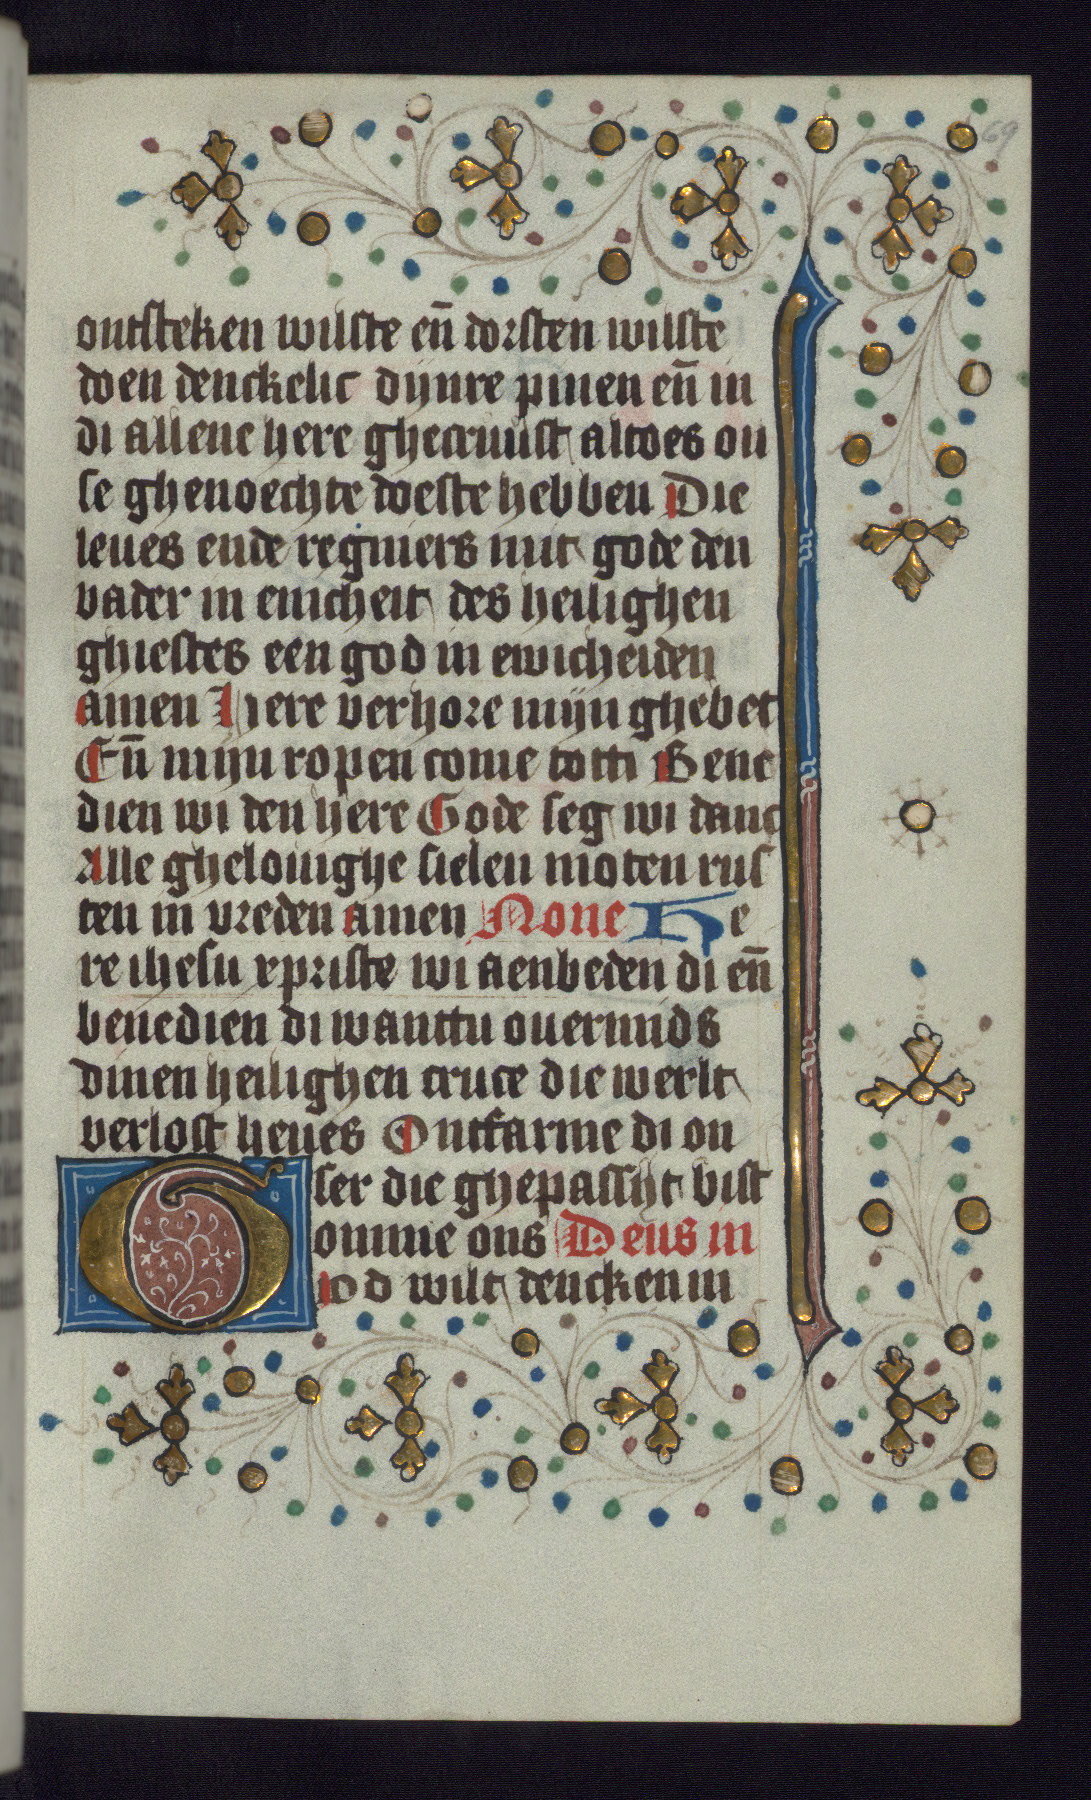 69
ontsteken wilste en̄ dorsten wilste
doen denckelic dijnre pinen en̄ in
di allene here ghecruust altoes on
se ghenoechte woeste hebben Die
leues ende regniers mit gode den
vader in enicheit des heilighen
ghiestes een god in ewicheiden
amen Here verhore mijn ghebet
En̄ mijn ropen come totti Bene
dien wi den here Gode seg wi danc
Alle ghelouighe sielen moten rus
ten in vreden amen None He
re ihesu xpriste wi aenbeden di en̄
benedien di wanttu ouermids
dinen heilighen cruce die werlt
verlost heues Ontfarme di on
ser die ghepassijt bist
omme ons Deus in
God wilt dencken in